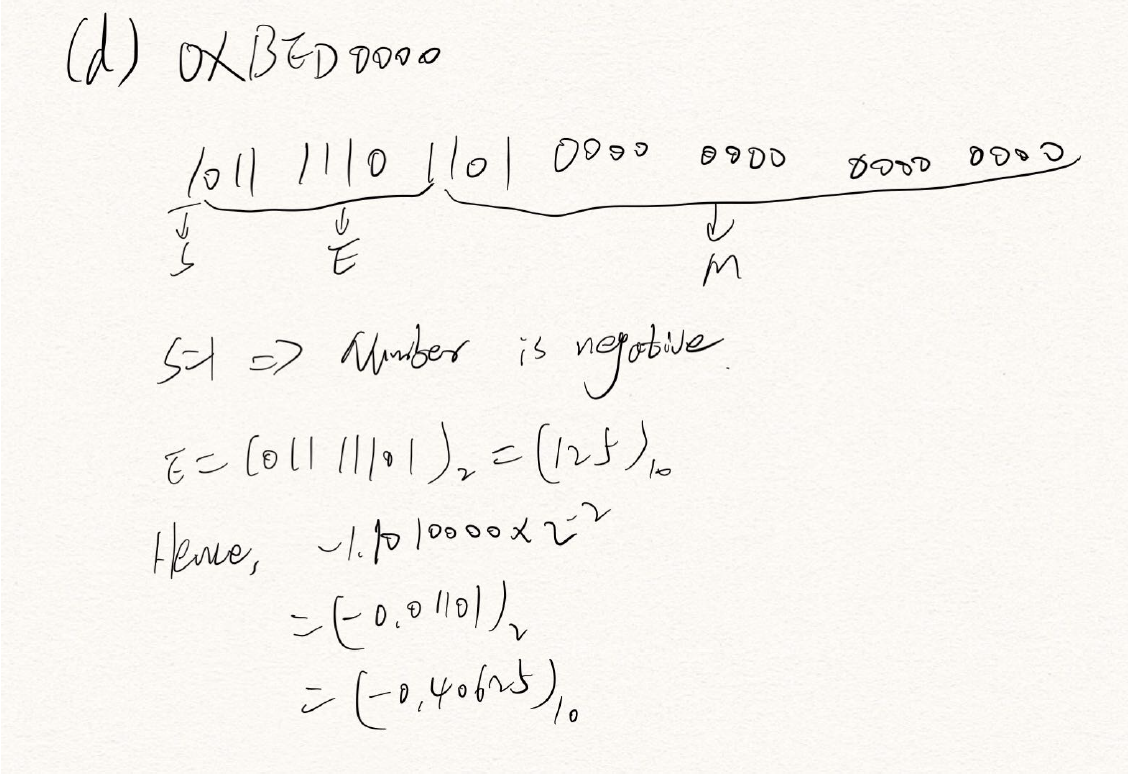 (d) 0XBED0000
1011 1110 1101 0000 0000 0000 0000
S E M
S=1 => Number is negative.
E = (01111101)₂ = (125)₁₀
Hence, -1.1010000 × 2⁻²
= (-0.01101)₂
= (-0.40625)₁₀